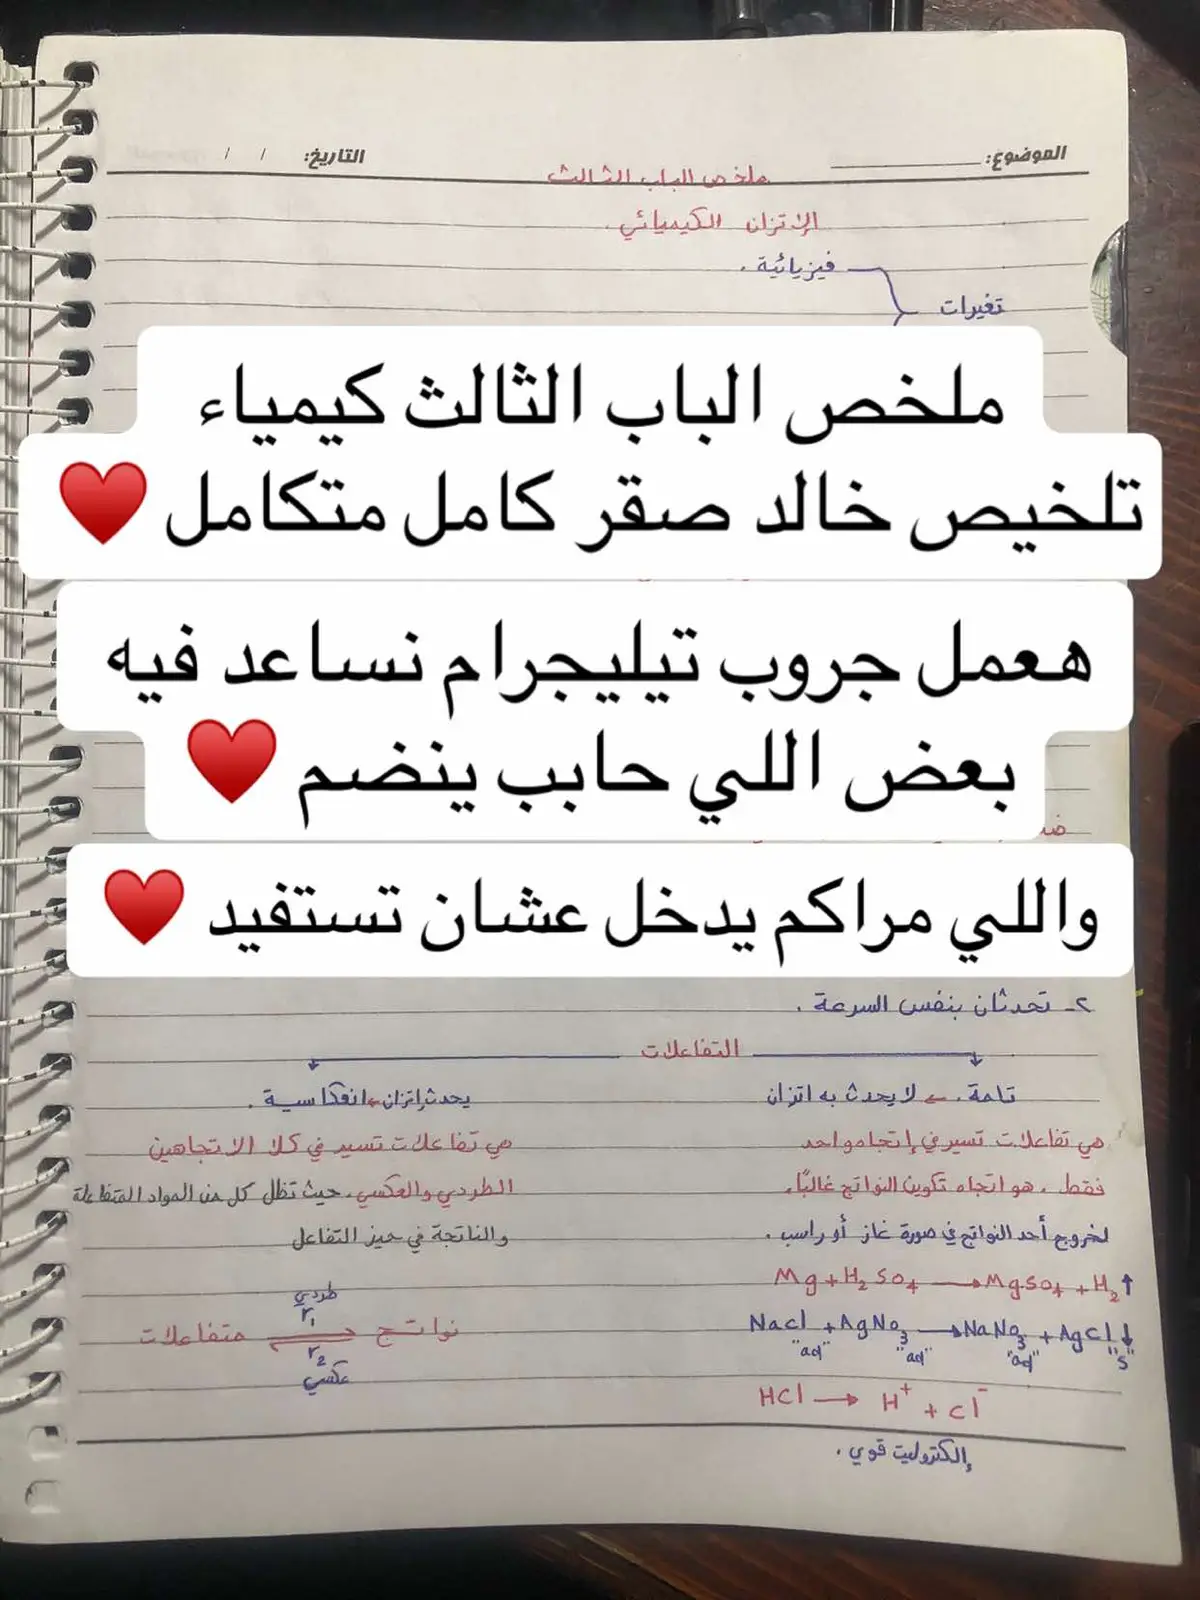 الموضوع: التاريخ: / /
ملخص الباب الثالث
الإتزان الكيميائي.
فيزيائية.
تغيرات
ملخص الباب الثالث كيمياء
تلخيص خالد صقر كامل متكامل ♥️
هعمل جروب تيليجرام نساعد فيه
بعض اللي حابب ينضم ♥️
واللي مراكم يدخل عشان تستفيد ♥️
٢- تحدثان بنفس السرعة.
التفاعلات
تامة. ← لا يحدث به اتزان
هي تفاعلات تسير في إتجاه واحد
فقط. هو اتجاه تكوين النواتج غالبًا.
لخروج أحد النواتج في صورة غاز أو راسب.
Mg + H₂SO₄ → MgSO₄ + H₂↑
NaCl "aq" + AgNO₃ "aq" → NaNO₃ "aq" + AgCl↓ "s"
HCl → H⁺ + Cl⁻
إلكتروليت قوي.
يحدث إتزان ← انعكاسية.
هي تفاعلات تسير في كلا الاتجاهين
الطردي والعكسي. حيث تظل كل من المواد المتفاعلة
والناتجة في حيز التفاعل
طردي
r₁
متفاعلات ⇌ نواتج
r₂
عكسي